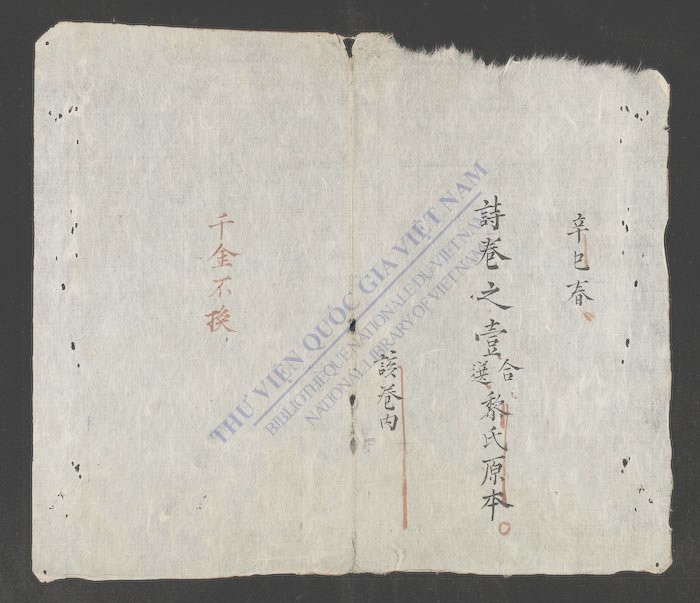 辛巳春
詩卷之壹合選黎氏原本
該卷內
千金不換
THƯ VIỆN QUỐC GIA VIỆT NAM
BIBLIOTHÈQUE NATIONALE DU VIETNAM
NATIONAL LIBRARY OF VIETNAM